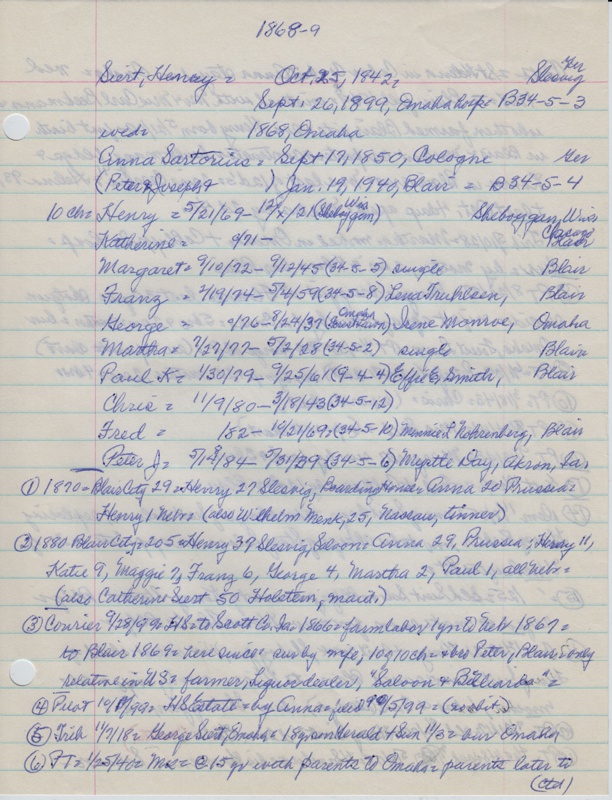 1868-9
Siert, Henry = Oct. 25, 1842, Slesvig Ger
Sept. 26, 1899, Omaha hosp = B34-5-3
wed = 1868, Omaha
Anna Sartorius = Sept 17, 1850, Cologne Ger
(Peter & Joseph + ) Jan. 19, 1940, Blair = B34-5-4
10 ch = Henry = 5/21/69 - (Sheboygan) Wis Sheboygan, Wis
Katherine = 9/71 -
Margaret = 9/10/72 - 9/12/45 (34-5-5) single Blair
Franz = 2/19/74 - 5/4/59 (34-5-8) Lena Truhlsen, Blair
George = 0/76 - 8/24/37 (Omaha) Irene Monroe, Omaha
Martha = 7/27/77 - 5/2/28 (34-5-2) single Blair
Paul K = 1/30/79 - 9/25/61 (9-4-4) Effie Smith, Blair
Chris = 11/9/80 - 3/18/43 (34-5-12)
Fred = 1882 - 10/21/69 = (34-5-10) Minnie L Blair
Peter J = 5/18/84 - 5/31/39 (34-5-6) Myrtle Day, Akron, Ia
① 1870 = Blair City 29 = Henry 27 Slesvig, Boarding House = Anna 20 Prussia =
Henry 1 Nebr = (also Wilhelm Menk, 25, Nassau, tinner)
② 1880 Blair City = 205 = Henry 37 Slesvig, Saloon = Anna 29, Prussia; Henry 11,
Katie 9, Maggie 7, Franz 6, George 4, Martha 2, Paul 1, all Nebr =
(also Catherine Siert 50 Holstein, maid)
③ Courier 9/28/99 = HS = to Scott Co. Ia, 1866 = farm labor 1 yr = to Nebr 1867 =
to Blair 1869 = here since = sur by wife, 10 ch = & bro Peter, Blair = only
relative in US = farmer, liquor dealer, "Saloon & Billiards" =
④ Pilot 10/ /99 = HS Estate = by Anna =
⑤ Trib 11/7/18 = George Siert, Omaha = 18 yr son Harold + Sun 11/3 = bur Omaha
⑥ PT = 1/25/40 = Mrs = @ 15 yr with parents to Omaha = parents later to
(ctd)